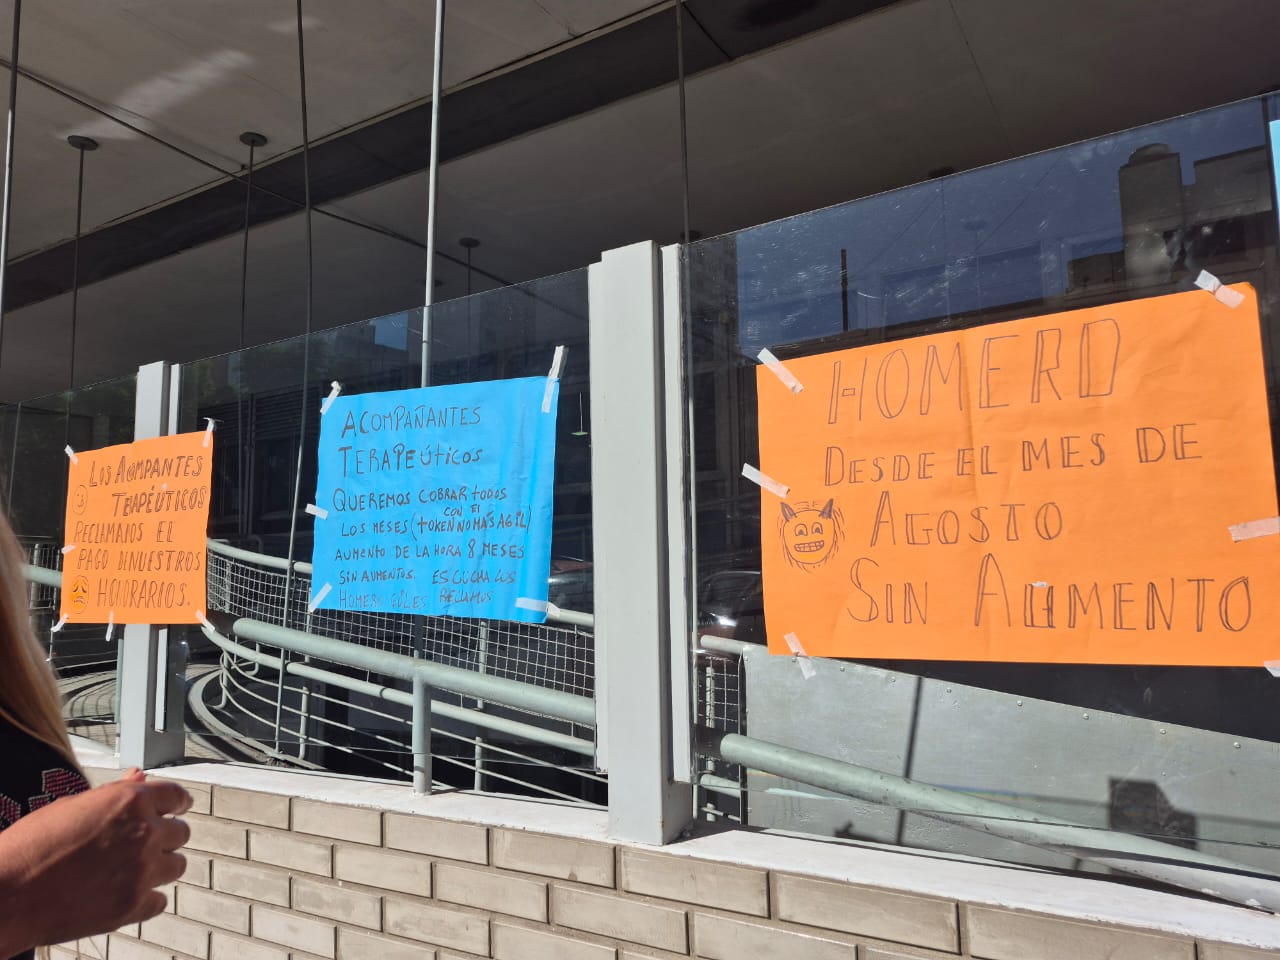 LOS ACOMPANTES
TERAPÉUTICOS
RECLAMAMOS EL
PAGO DE NUESTROS
HONORARIOS.
ACOMPAÑANTES
TERAPÉUTICOS
QUEREMOS COBRAR TODOS
LOS MESES (CON EL TOKEN NO MAS AGIL)
AUMENTO DE LA HORA 8 MESES
SIN AUMENTOS. ESCUCHA LOS
HOMERO RECLAMOS
HOMERO
DESDE EL MES DE
AGOSTO
SIN AUMENTO